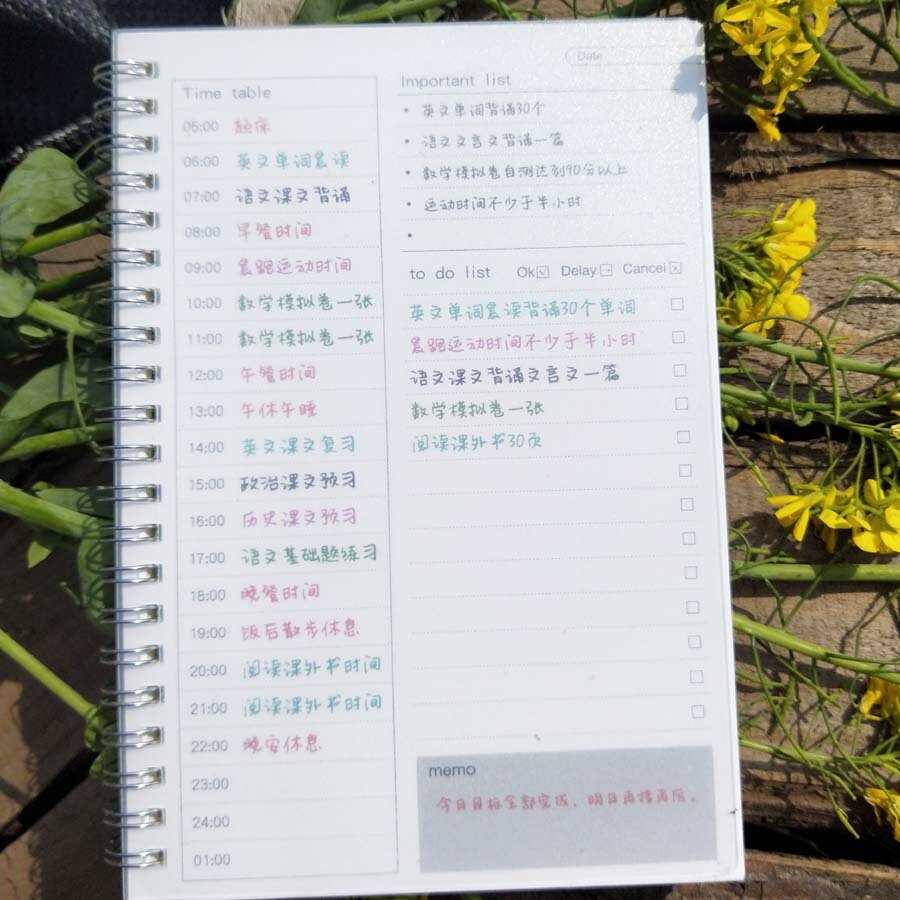 Date
Time table
05:00 起床
06:00 英文单词晨读
07:00 语文课文背诵
08:00 早餐时间
09:00 晨跑运动时间
10:00 数学模拟卷一张
11:00 数学模拟卷一张
12:00 午餐时间
13:00 午休午睡
14:00 英文课文复习
15:00 政治课文预习
16:00 历史课文预习
17:00 语文基础题练习
18:00 晚餐时间
19:00 饭后散步休息
20:00 阅读课外书时间
21:00 阅读课外书时间
22:00 晚安休息
23:00
24:00
01:00
Important list
• 英文单词背诵30个
• 语文文言文背诵一篇
• 数学模拟卷自测达到90分以上
• 运动时间不少于半小时
•
to do list Ok Delay Cancel
英文单词晨读背诵30个单词
晨跑运动时间不少于半小时
语文课文背诵文言文一篇
数学模拟卷一张
阅读课外书30页
memo
今日目标全部完成,明日再接再厉。